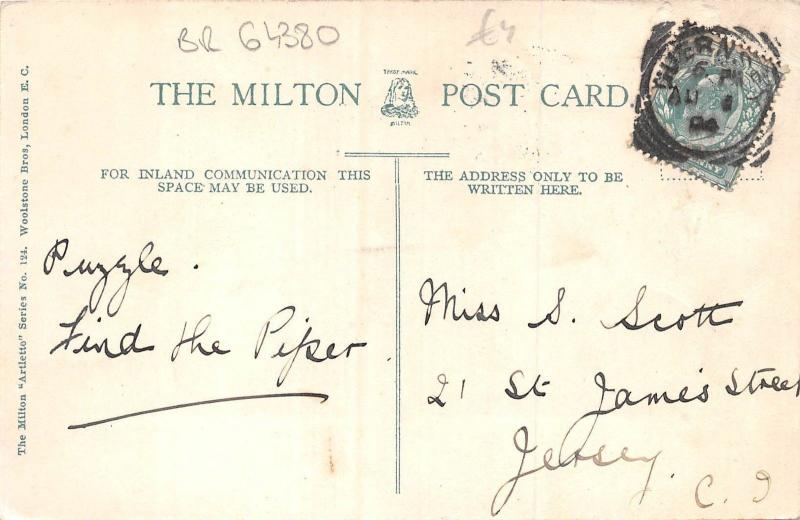 BR 64380
£4
THE MILTON POST CARD.
TRADE MARK
MILTON
GUERNSEY
AU
04
FOR INLAND COMMUNICATION THIS
SPACE MAY BE USED.
THE ADDRESS ONLY TO BE
WRITTEN HERE.
The Milton "Artletto" Series No. 124. Woolstone Bros, London E. C.
Puzzle.
Find the Piper.
Miss S. Scott
21 St James Street
Jersey.
C. I